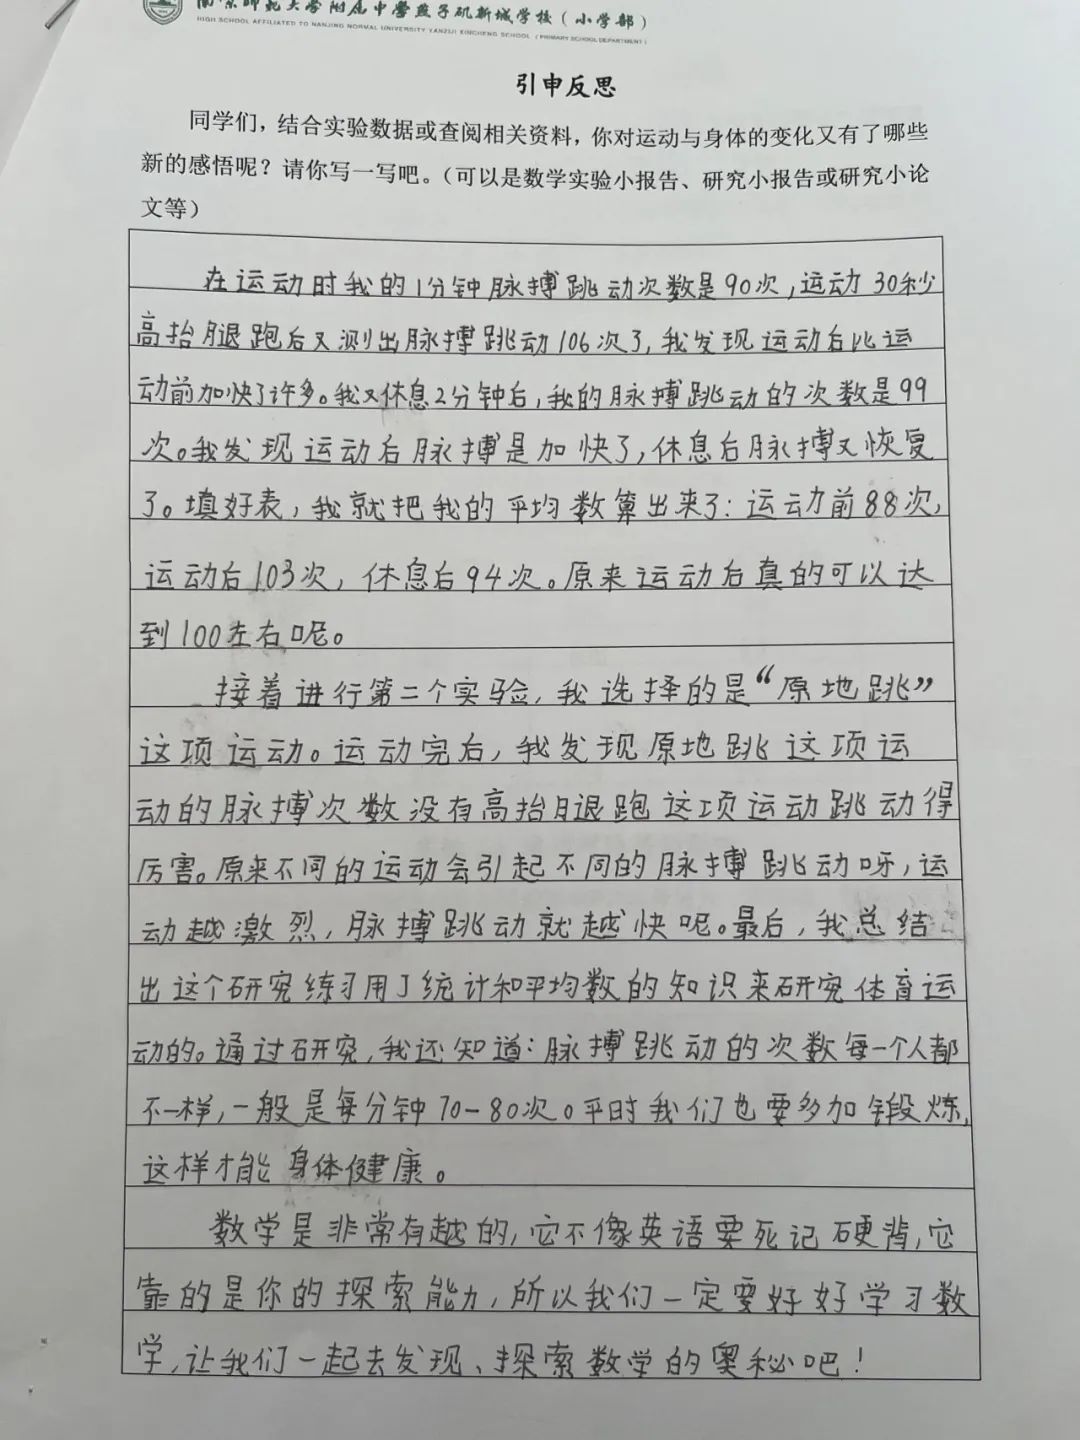 南京师范大学附属中学燕子矶新城学校（小学部）
HIGH SCHOOL AFFILIATED TO NANJING NORMAL UNIVERSITY YANZIJI XINCHENG SCHOOL（PRIMARY SCHOOL DEPARTMENT）
引申反思
同学们，结合实验数据或查阅相关资料，你对运动与身体的变化又有了哪些
新的感悟呢？请你写一写吧。（可以是数学实验小报告、研究小报告或研究小论
文等）
在运动时我的1分钟脉搏跳动次数是90次，运动30秒
高抬腿跑后又测出脉搏跳动106次了，我发现运动后比运
动前加快了许多。我又休息2分钟后，我的脉搏跳动的次数是99
次。我发现运动后脉搏是加快了，休息后脉搏又恢复
了。填好表，我就把我的平均数算出来了：运动前88次，
运动后103次，休息后94次。原来运动后真的可以达
到100左右呢。
接着进行第二个实验，我选择的是“原地跳”
这项运动。运动完后，我发现原地跳这项运
动的脉搏次数没有高抬腿跑这项运动跳动得
厉害。原来不同的运动会引起不同的脉搏跳动呀，运
动越激烈，脉搏跳动就越快呢。最后，我总结
出这个研究练习用了统计和平均数的知识来研究体育运
动的。通过研究，我还知道：脉搏跳动的次数每一个人都
不一样，一般是每分钟70-80次。平时我们也要多加锻炼，
这样才能身体健康。
数学是非常有越的，它不像英语要死记硬背，它
靠的是你的探索能力，所以我们一定要好好学习数
学，让我们一起去发现、探索数学的奥秘吧！